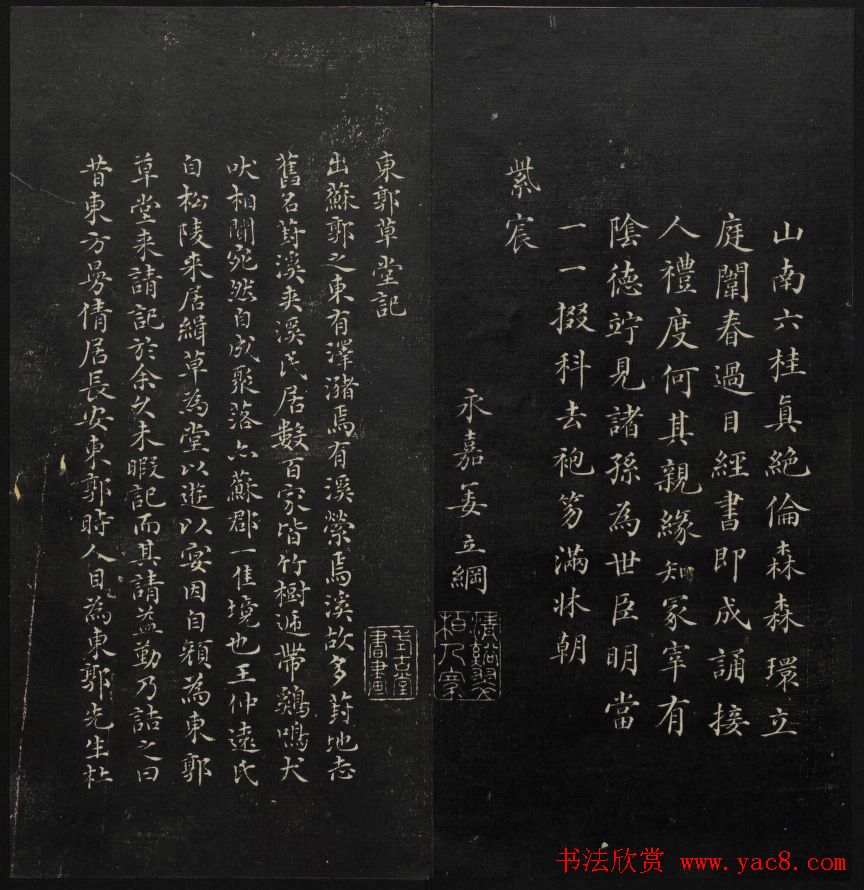 山南六桂真絕倫森森環立
庭闈春過目經書即成誦接
人禮度何其親緣知冢宰有
陰德竚見諸孫為世臣明當
一一掇科去袍笏滿牀朝
紫宸
永嘉姜立綱
東郭草堂記
出蘇郭之東有澤瀦焉有溪縈焉溪故多葑地志
舊名葑溪夾溪民居數百家皆竹樹迤帶鷄鳴犬
吠相聞宛然自成聚落亦蘇郡一佳境也王仲遠氏
自松陵來居緝草為堂以遊以宴因自顏為東郭
草堂來請記於余久未暇記而其請益勤乃詰之曰
昔東方曼倩居長安東郭時人目為東郭先生杜
书法欣赏 www.yac8.com